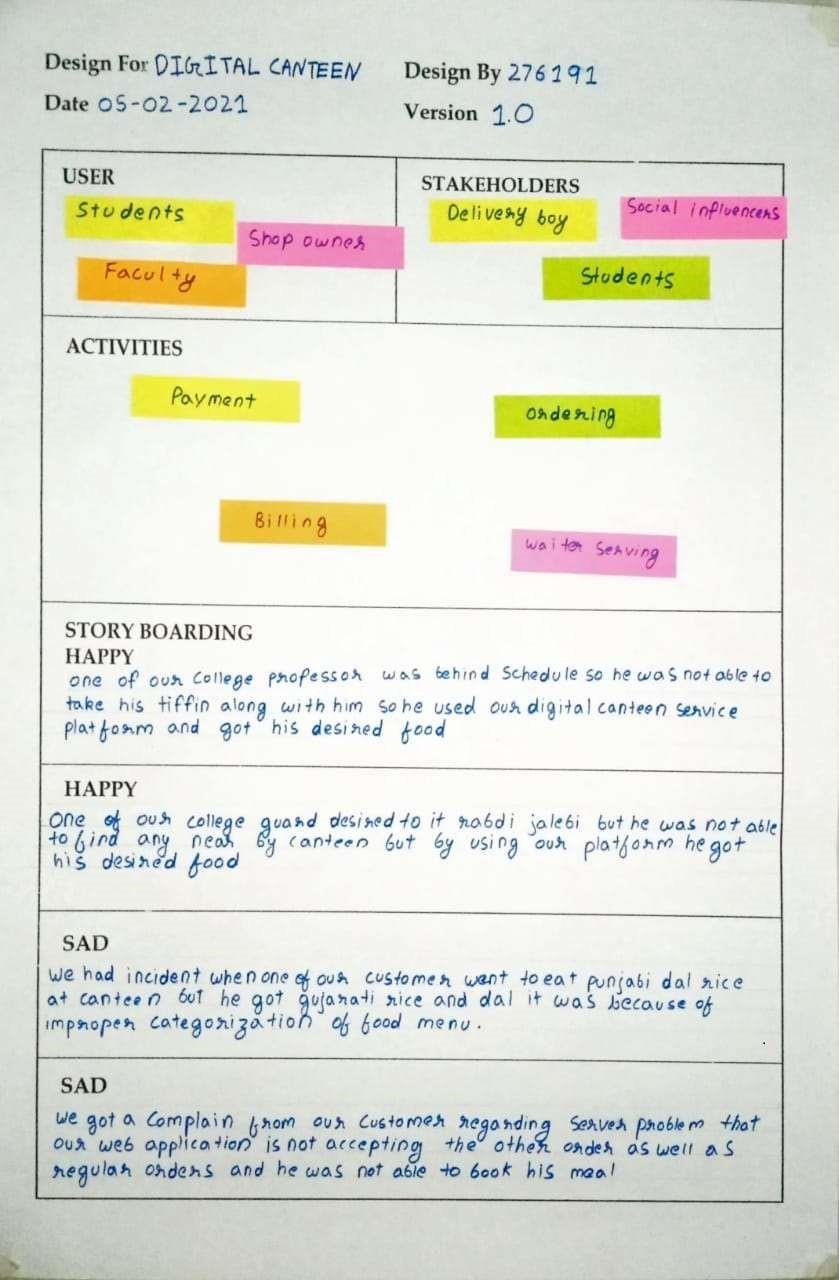 Design For DIGITAL CANTEEN
Design By 276191
Date 05-02-2021
Version 1.0
USER
Students
Shop owner
Faculty
STAKEHOLDERS
Delivery boy
Social influencers
Students
ACTIVITIES
Payment
ordering
Billing
waiter serving
STORY BOARDING
HAPPY
one of our college professor was behind schedule so he was not able to
take his tiffin along with him so he used our digital canteen service
platform and got his desired food
HAPPY
One of our college guard desired to it rabdi jalebi but he was not able
to find any near by canteen but by using our platform he got
his desired food
SAD
we had incident when one of our customer want to eat punjabi dal rice
at canteen but he got gujarati rice and dal it was because of
improper categorization of food menu.
SAD
we got a complain from our customer regarding server problem that
our web application is not accepting the other order as well as
regular orders and he was not able to book his meal